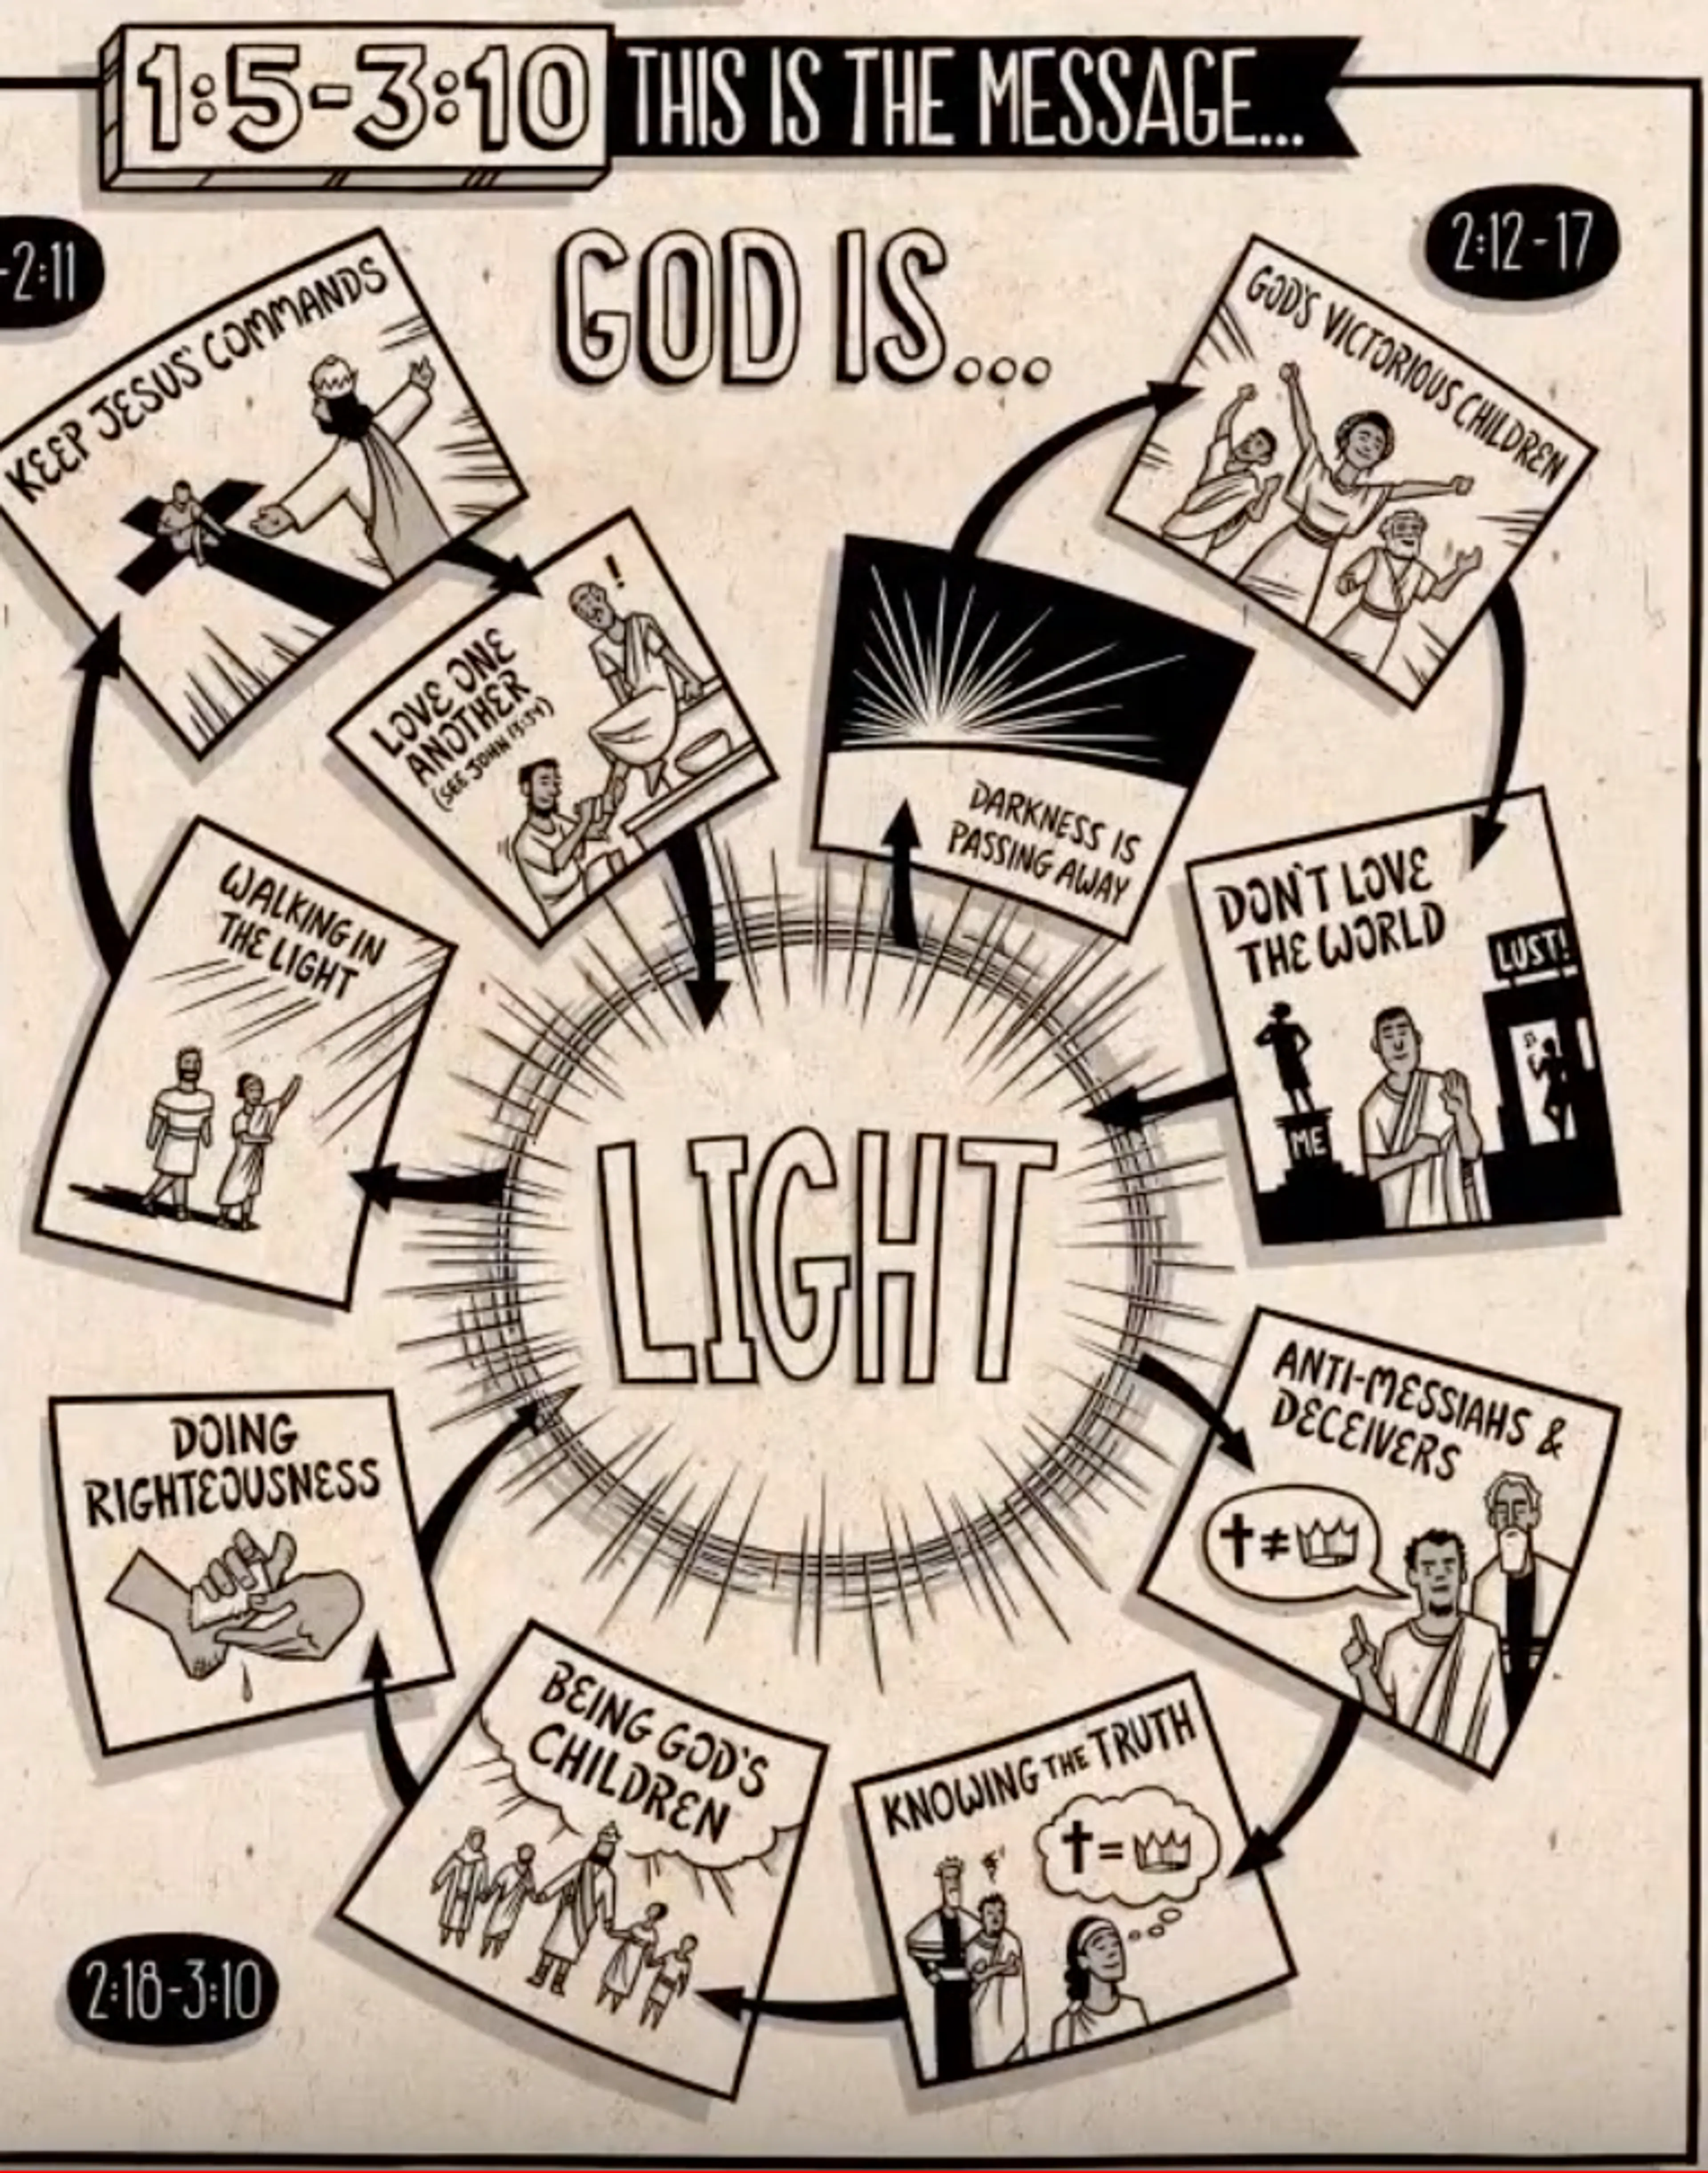 1:5-3:10 THIS IS THE MESSAGE...
GOD IS...
LIGHT
-2:11
WALKING IN
THE LIGHT
KEEP JESUS' COMMANDS
LOVE ONE
ANOTHER
(SEE JOHN 13:34)
!
2:12-17
DARKNESS IS
PASSING AWAY
GOD'S VICTORIOUS CHILDREN
DON'T LOVE
THE WORLD
LUST!
ME
ANTI-MESSIAHS &
DECEIVERS
≠
KNOWING THE TRUTH
=
BEING GOD'S
CHILDREN
DOING
RIGHTEOUSNESS
2:18-3:10